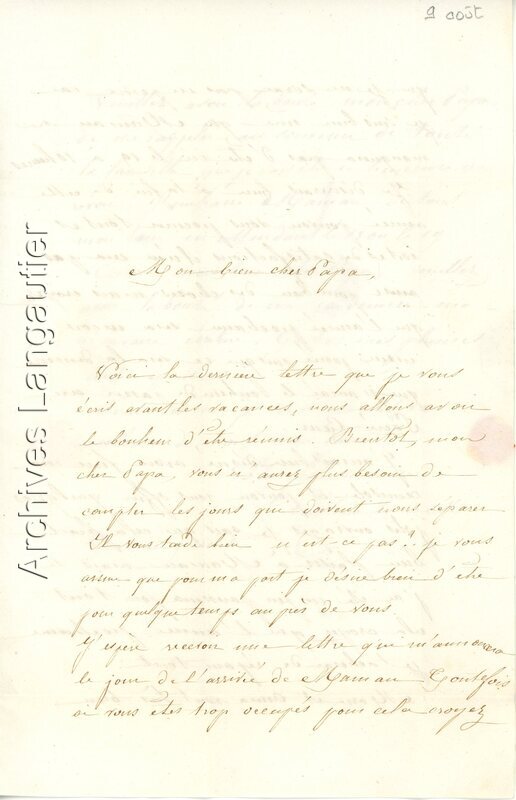 9 août
Archives Langautier
Mon bien cher Papa,
Voici la dernière lettre que je vous
écris avant les vacances, nous allons avoir
le bonheur d'être réunis. Bientôt, mon
cher Papa, vous n'aurez plus besoin de
compter les jours que doivent nous séparer
Il vous tarde bien n'est-ce pas! je vous
assure que pour ma part je désire bien d'être
pour quelque temps auprès de vous.
J'espère recevoir une lettre qui m'annoncera
le jour de l'arrivée de Maman Toutefois
si vous êtes trop occupés pour cela croyez